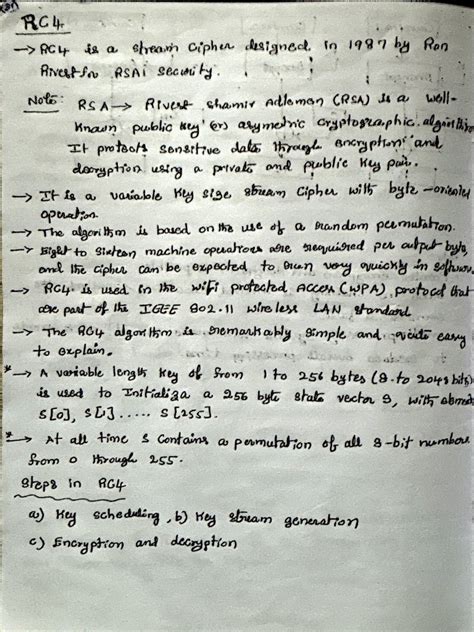 RC4
→ RC4 is a stream Cipher designed in 1987 by Ron
Rivest for RSA security.
Note: RSA → Rivest shamir Adleman (RSA) is a well-
known public key (or) asymetric cryptographic algorithm
It protects sensitive data through encryption and
decryption using a private and public key pair.
→ It is a variable key size stream Cipher with byte-oriented
operation.
→ The algorithm is based on the use of a random permutation.
→ Eight to sixteen machine operations are required per output byte,
and the cipher can be expected to run very quickly in software.
→ RC4 is used in the wifi protected Access (WPA) protocol that
are part of the IEEE 802.11 wireless LAN standard
→ The RC4 algorithm is remarkably simple and quite easy
to explain.
* → A variable length key of from 1 to 256 bytes (8 to 2048 bits)
is used to Initialize a 256 byte state vector S, with
S[0], S[1] ..... S[255].
* → At all time S Contains a permutation of all 8-bit numbers
from 0 through 255.
Steps in RC4
a) Key scheduling, b) Key stream generation
c) Encryption and decryption